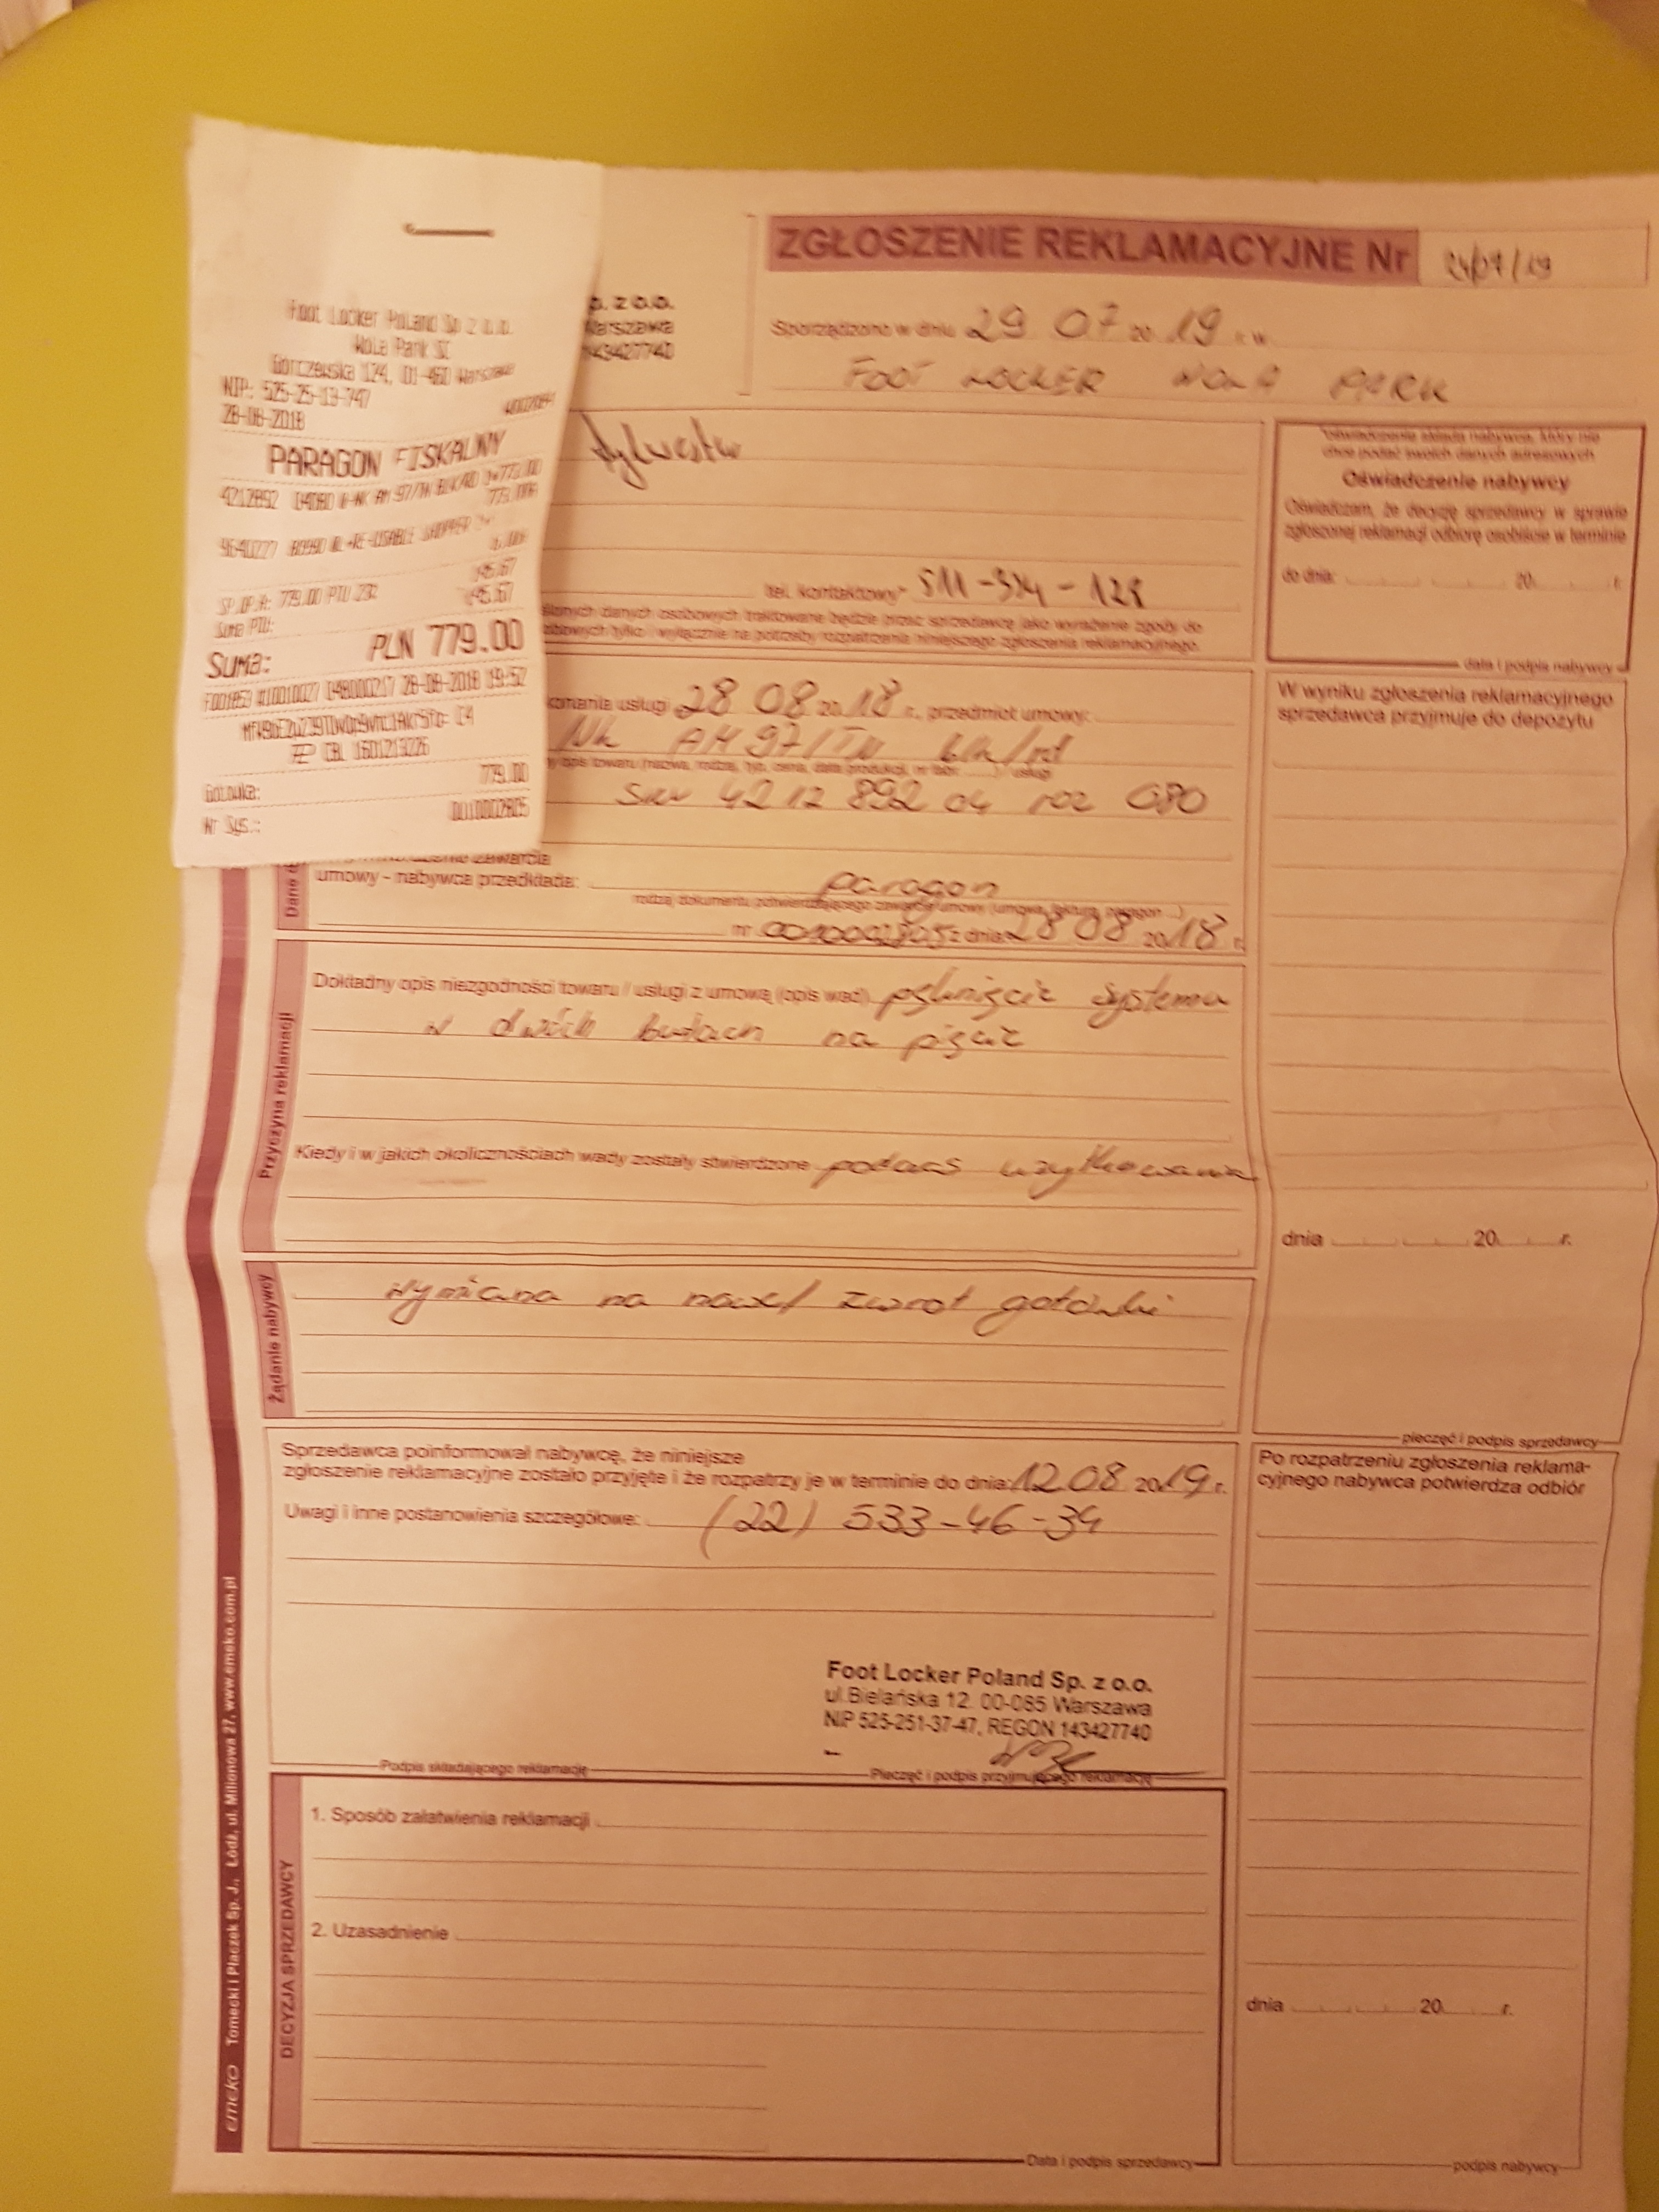 Foot Locker Poland Sp z o.o.
Wola Park SC
Górczewska 124, 01-460 Warszawa
NIP: 525-25-13-747
28-08-2018
PARAGON FISKALNY
4212892 04080 NK AM 97/TN BLK/RD 1*779.00
779.00A
9640277
SP.OP.A: 779.00 PTU 23%
145.67
Suma PTU:
145.67
Suma:
PLN 779.00
28-08-2018 19:52
779.00
Gotówka:
Nr Sys.:
0010002805
p. z o.o.
Warszawa
143427740
ZGŁOSZENIE REKLAMACYJNE Nr 24/07/19
Sporządzono w dniu 29 07 20 19 r. w
FOOT LOCKER WOLA PARK
Sylwester
tel. kontaktowy* 511-334-128
danych osobowych traktowane będzie przez sprzedawcę jako wyrażenie zgody do
tylko i wyłącznie na potrzeby rozpatrzenia niniejszego zgłoszenia reklamacyjnego.
*oświadczenie składa nabywca, który nie
chce podać swoich danych adresowych
Oświadczenie nabywcy
Oświadczam, że decyzję sprzedawcy w sprawie
zgłoszonej reklamacji odbiorę osobiście w terminie
do dnia: 20 r.
data i podpis nabywcy
konania usługi 28 08 20 18 r., przedmiot umowy:
NK AM 97/TN blk/rd
SKU 42 12 892 04 roz 080
umowy - nabywca przedkłada: paragon
rodzaj dokumentu potwierdzającego zawarcie umowy (umowa, faktura, paragon ...)
nr 0010002805 z dnia 28 08 2018 r.
W wyniku zgłoszenia reklamacyjnego
sprzedawca przyjmuje do depozytu
dnia 20 r.
pieczęć i podpis sprzedawcy
Przyczyna reklamacji
Dokładny opis niezgodności towaru / usługi z umową (opis wad) pęknięcie systemu
w dwóch butach na pięcie
Kiedy i w jakich okolicznościach wady zostały stwierdzone podczas użytkowania
Żądanie nabywcy
wymiana na nowe/ zwrot gotówki
Sprzedawca poinformował nabywcę, że niniejsze
zgłoszenie reklamacyjne zostało przyjęte i że rozpatrzy je w terminie do dnia: 12 08 2019 r.
Uwagi i inne postanowienia szczegółowe: (22) 533-46-34
Foot Locker Poland Sp. z o.o.
ul.Bielańska 12 00-085 Warszawa
NIP 525-251-37-47, REGON 143427740
Podpis składającego reklamację
Pieczęć i podpis przyjmującego reklamację
Po rozpatrzeniu zgłoszenia reklama-
cyjnego nabywca potwierdza odbiór
dnia 20 r.
podpis nabywcy
DECYZJA SPRZEDAWCY
1. Sposób załatwienia reklamacji
2. Uzasadnienie
Data i podpis sprzedawcy
emeko Tomecki i Płaczek Sp. J., Łódź, ul. Milionowa 27, www.emeko.com.pl